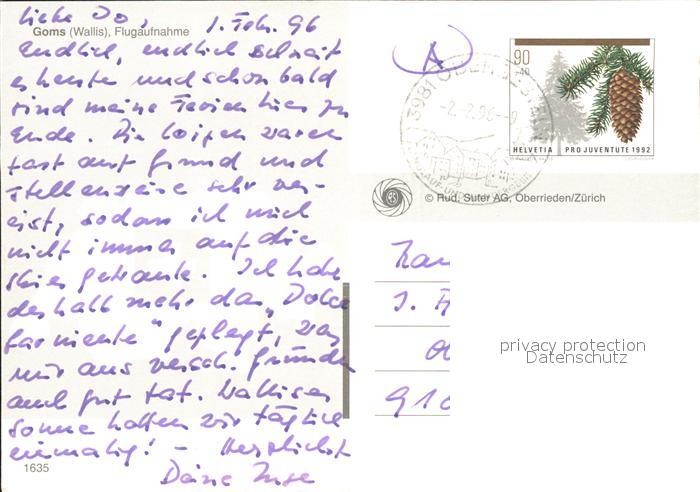 Liebe Do, 1. Feb. 96
Goms (Wallis), Flugaufnahme
Endlich, endlich schneit
es heute und schon bald
sind meine Ferien hier zu
Ende. Die Loipen waren
fast auf Grund und
stellenweise sehr ver-
eist, sodass ich mich
nicht immer auf die
Skier getraute. Ich habe
deshalb mehr das „Dolce
far niente" gepflegt, was
mir aus versch. Gründen
auch gut tat. Walliser
sonne hatten wir täglich
einmalig! – Herzlichst
Deine Inge
1635
A
90
+40
HELVETIA PRO JUVENTUTE 1992
3981 OBER
-2.-2.96-
© Rud. Suter AG, Oberrieden/Zürich
910
privacy protection
Datenschutz